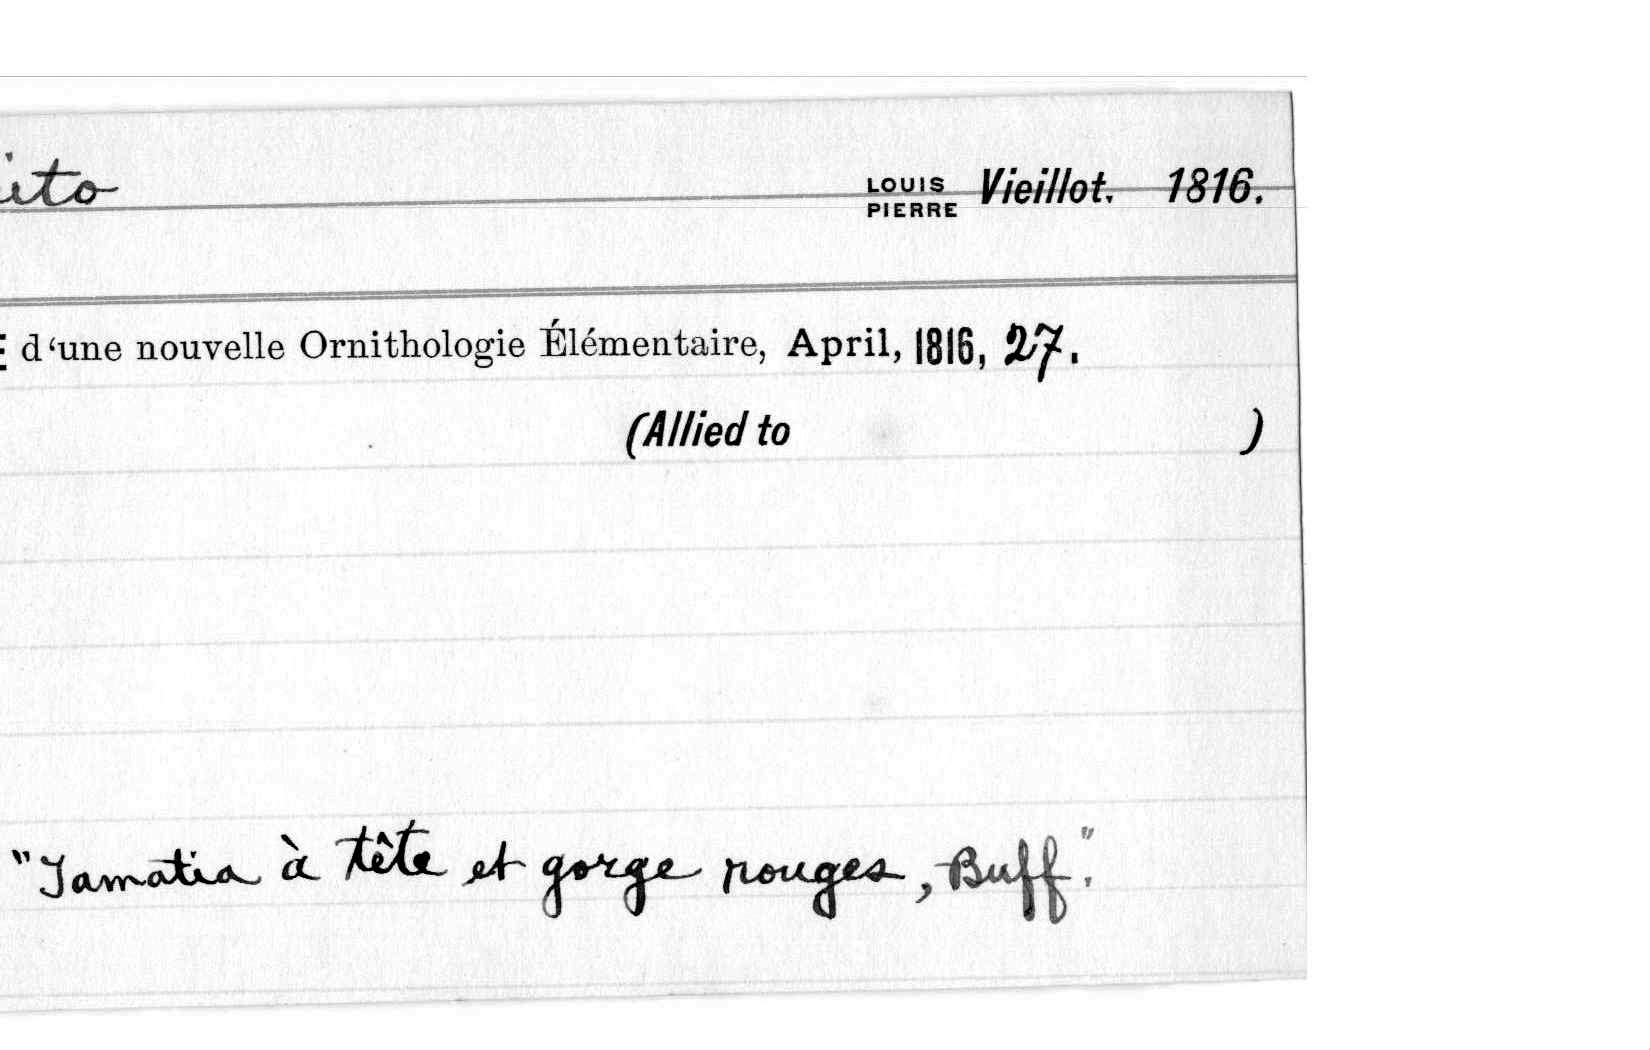 ito LOUIS PIERRE Vieillot. 1816.
E d‘une nouvelle Ornithologie Élémentaire, April, 1816, 27.
(Allied to )
"Tamatia à tête et gorge rouges, Buff."